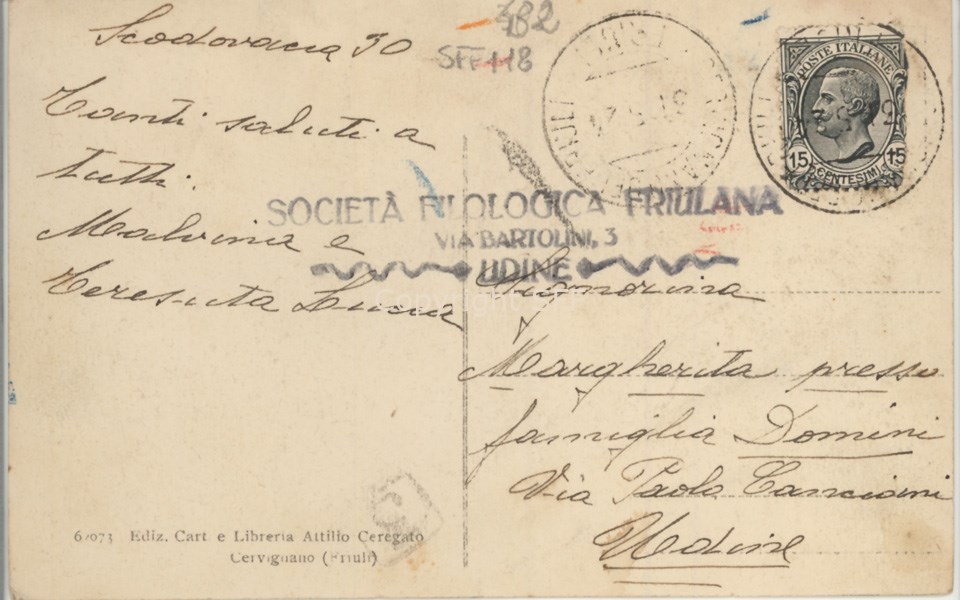 Scodovacca 30
Tanti saluti a
tutti.
Malvina e
Teresuta
6/073 Ediz. Cart e Libreria Attilio Ceregato
Cervignano (Friuli)
382
SFF 118
SOCIETÀ FILOLOGICA FRIULANA
VIA BARTOLINI, 3
UDINE
POSTE ITALIANE
15 15
CENTESIMI
Signorina
Margherita presso
famiglia Domini
Via Paolo Canciani
Udine